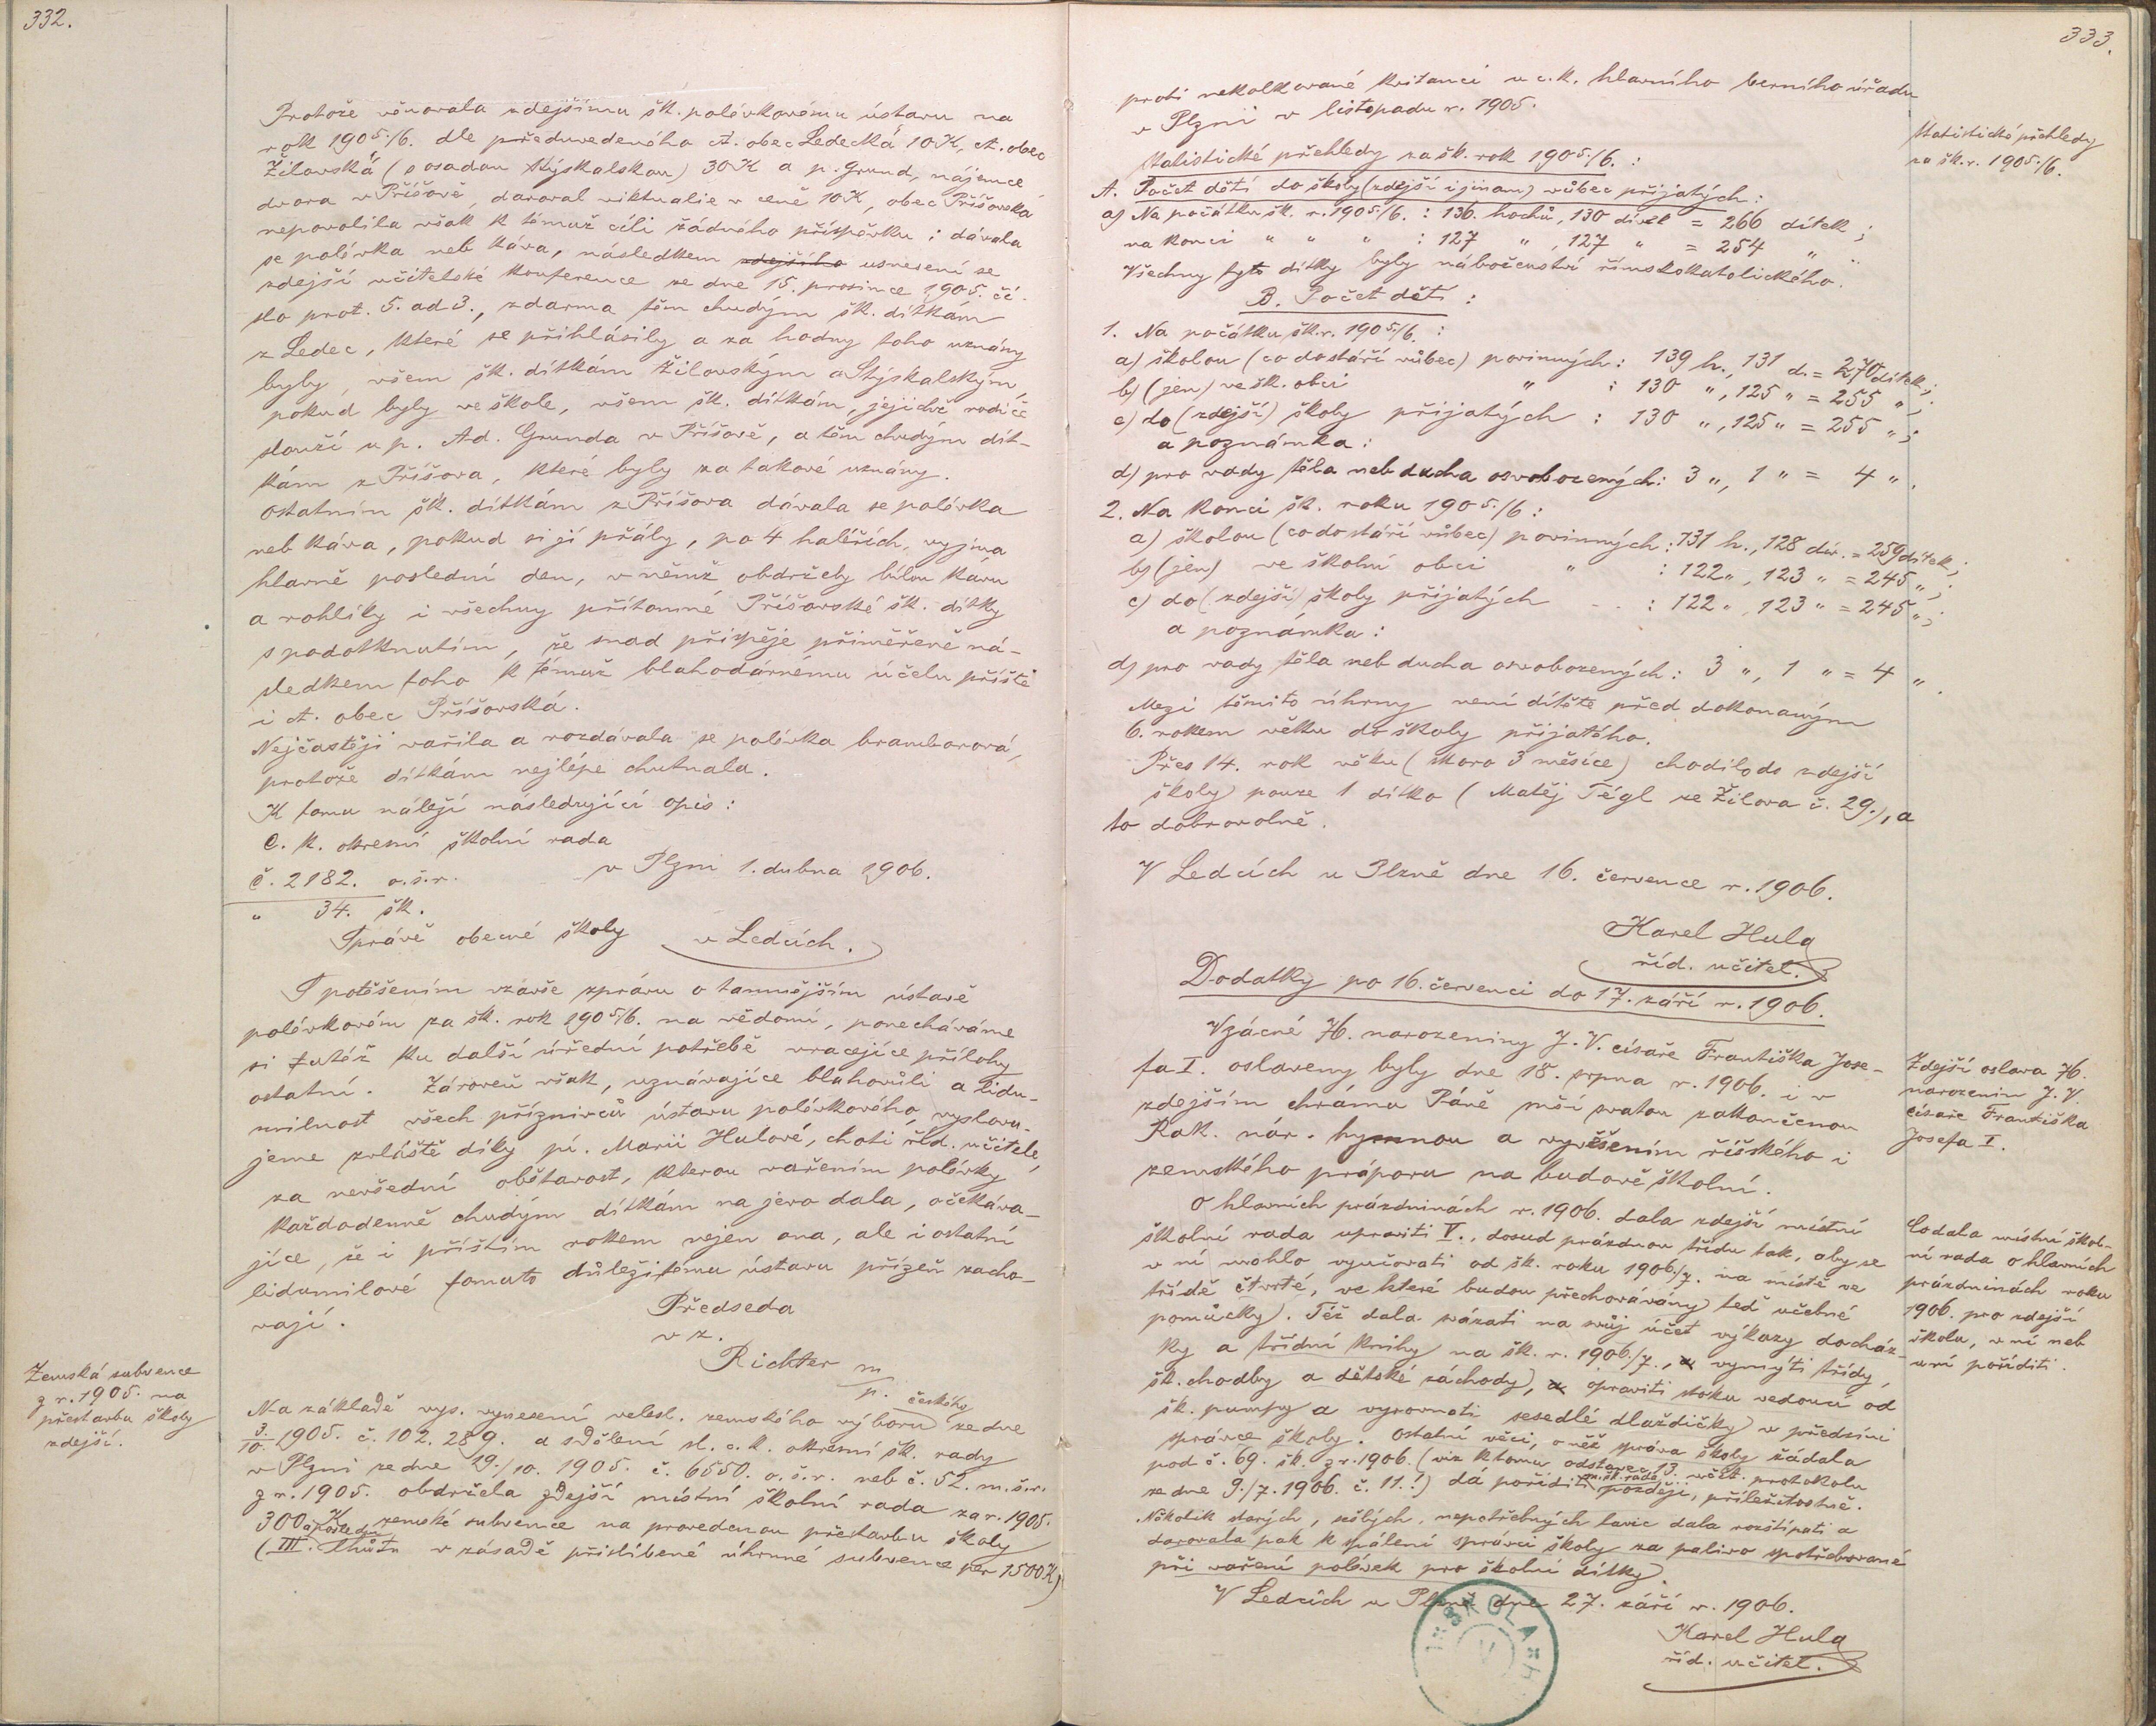 332.
Protože věnovala zdejšímu šk. polévkovému ústavu na
rok 1905./6. dle předuvedeného ct. obec Ledecká 10 K, ct. obec
Žilovská (s osadou Stýskalskou) 30 K a p. Grund, nájemce
dvora v Příšově, daroval viktualie v ceně 10 K, obec Příšovská
nepovolila však k témuž cíli žádného příspěvku; dávala
se polévka neb káva, následkem zdejšího usnesení se
zdejší učitelské konference ze dne 15. prosince 1905. čí-
slo prot. 5. ad 3., zdarma těm chudým šk. dítkám
z Ledec, které se přihlásily a za hodny toho uznány
byly, všem šk. dítkám Žilovským a Stýskalským,
pokud byly ve škole, všem šk. dítkám, jejichž rodiče
slouží u p. Ad. Grunda v Příšově, a těm chudým dít-
kám z Příšova, které byly za takové uznány.
Ostatním šk. dítkám z Příšova dávala se polévka
neb káva, pokud si jí přály, po 4 haléřích, vyjma
hlavně poslední den, v němž obdržely bílou kávu
a rohlíky i všechny přítomné Příšovské šk. dítky
s podotknutím, že snad přispěje přiměřeně ná-
sledkem toho k témuž blahodárnému účelu příště
i ct. obec Příšovská.
Nejčastěji vařila a rozdávala se polévka bramborová,
protože dítkám nejlépe chutnala.
K tomu náleží následující opis:
C. k. okresní školní rada
v Plzni 1. dubna 1906.
Č. 2182. o. š. r.
„ 34. šk.
Správě obecné školy v Ledcích.
S potěšením vzavše zprávu o tamnějším ústavě
polévkovém za šk. rok 1905/6. na vědomí, ponecháváme
si tutéž ku další úřední potřebě vracejíce přílohy
ostatní. Zároveň však, uznávajíce blahovůli a lidu-
milnost všech příznivců ústavu polévkového, vyslovu-
jeme zvláště díky pí. Marii Hulové, choti říd. učitele,
za nevšední obětavost, kterou vařením polévky
každodenně chudým dítkám na jevo dala, očekáva-
jíce, že i příštím rokem nejen ona, ale i ostatní
lidumilové tomuto důležitému ústavu přízeň zacho-
vají.
Předseda
v z.
Richter m/p.
Zemská subvence
z r. 1905. na
přestavbu školy
zdejší.
Na základě vys. vynesení velesl. zemského výboru českého ze dne
3./10. 1905. č. 102.289. a sdělení sl. c. k. okresní šk. rady
v Plzni ze dne 19./10. 1905. č. 6550. o. š. r. neb č. 52. m. š. r.
z r. 1905. obdržela zdejší místní školní rada za r. 1905.
300 K zemské subvence na provedenou přestavbu školy
(III. a poslední lhůtu v zásadě přislíbené úhrnné subvence per 1500 K)
333.
proti nekolkované kvitanci u c. k. hlavního berního úřadu
v Plzni v listopadu r. 1905.
Statistické přehledy
za šk. r. 1905./6.
Statistické přehledy za šk. rok 1905./6. :
A. Počet dětí do školy (zdejší i jinam) vůbec přijatých:
a) Na počátku šk. r. 1905/6. : 136 hochů, 130 dívek = 266 dítek;
na konci „ „ „ : 127 „ , 127 „ = 254 „ .
Všechny tyto dítky byly náboženství římskokatolického.
B. Počet dětí :
1. Na počátku šk. r. 1905./6. :
a) školou (co do stáří vůbec) povinných : 139 h., 131 d. = 270 dítek;
b) (jen) ve šk. obci „ : 130 „, 125 „ = 255 „ ;
c) do (zdejší) školy přijatých : 130 „, 125 „ = 255 „ ;
a poznámka :
d) pro vady těla neb ducha osvobozených : 3 „, 1 „ = 4 „ .
2. Na konci šk. roku 1905./6 :
a) školou (co do stáří vůbec) povinných : 131 h., 128 dív. = 259 dítek;
b) (jen) ve školní obci „ : 122 „, 123 „ = 245 „ ;
c) do (zdejší) školy přijatých . . : 122 „, 123 „ = 245 „ ;
a poznámka :
d) pro vady těla neb ducha osvobozených : 3 „, 1 „ = 4 „ .
Mezi těmito úhrny není dítěte před dokonaným
6. rokem věku do školy přijatého.
Přes 14. rok věku (skoro 3 měsíce) chodilo do zdejší
školy pouze 1 dítko (Matěj Tégl ze Žilova č. 29.), a
to dobrovolně.
V Ledcích u Plzně dne 16. července r. 1906.
Karel Hula
říd. učitel.
Dodatky po 16. červenci do 17. září r. 1906.
Zdejší oslava 76.
narozenin J. V.
císaře Františka
Josefa I.
Vzácné 76. narozeniny J. V. císaře Františka Jose-
fa I. oslaveny byly dne 18. srpna r. 1906. i v
zdejším chrámu Páně mší svatou zakončenou
Rak. nár. hymnou a vyvěšením říšského i
zemského práporu na budově školní.
Co dala místní škol-
ní rada o hlavních
prázdninách roku
1906. pro zdejší
školu, v ní neb
u ní poříditi.
O hlavních prázdninách r. 1906. dala zdejší místní
školní rada upraviti V., dosud prázdnou třídu tak, aby se
v ní mohlo vyučovati od šk. roku 1906/7. na místě ve
třídě čtvrté, ve které budou přechovávány teď učebné
pomůcky). Též dala svázati na svůj účet výkazy docház-
ky a třídní knihy na šk. r. 1906./7., vymýti třídy,
šk. chodby a dětské záchody), opraviti stoku vedoucí od
šk. pumpy a vyrovnati sesedlé dlaždičky v předsíni
správce školy. Ostatní věci, o něž správa školy žádala
pod č. 69. šk. z r. 1906. (viz k tomu odstavec 13. učit. protokolu
ze dne 9./7. 1906. č. 11.!) dá poříditi m. šk. rada později, příležitostně.
Několik starých, sešlých, nepotřebných lavic dala rozštípati a
darovala pak k spálení správci školy za palivo spotřebované
při vaření polévek pro školní dítky.
V Ledcích u Plzně dne 27. září r. 1906.
Karel Hula
říd. učitel.
ŠKOLA